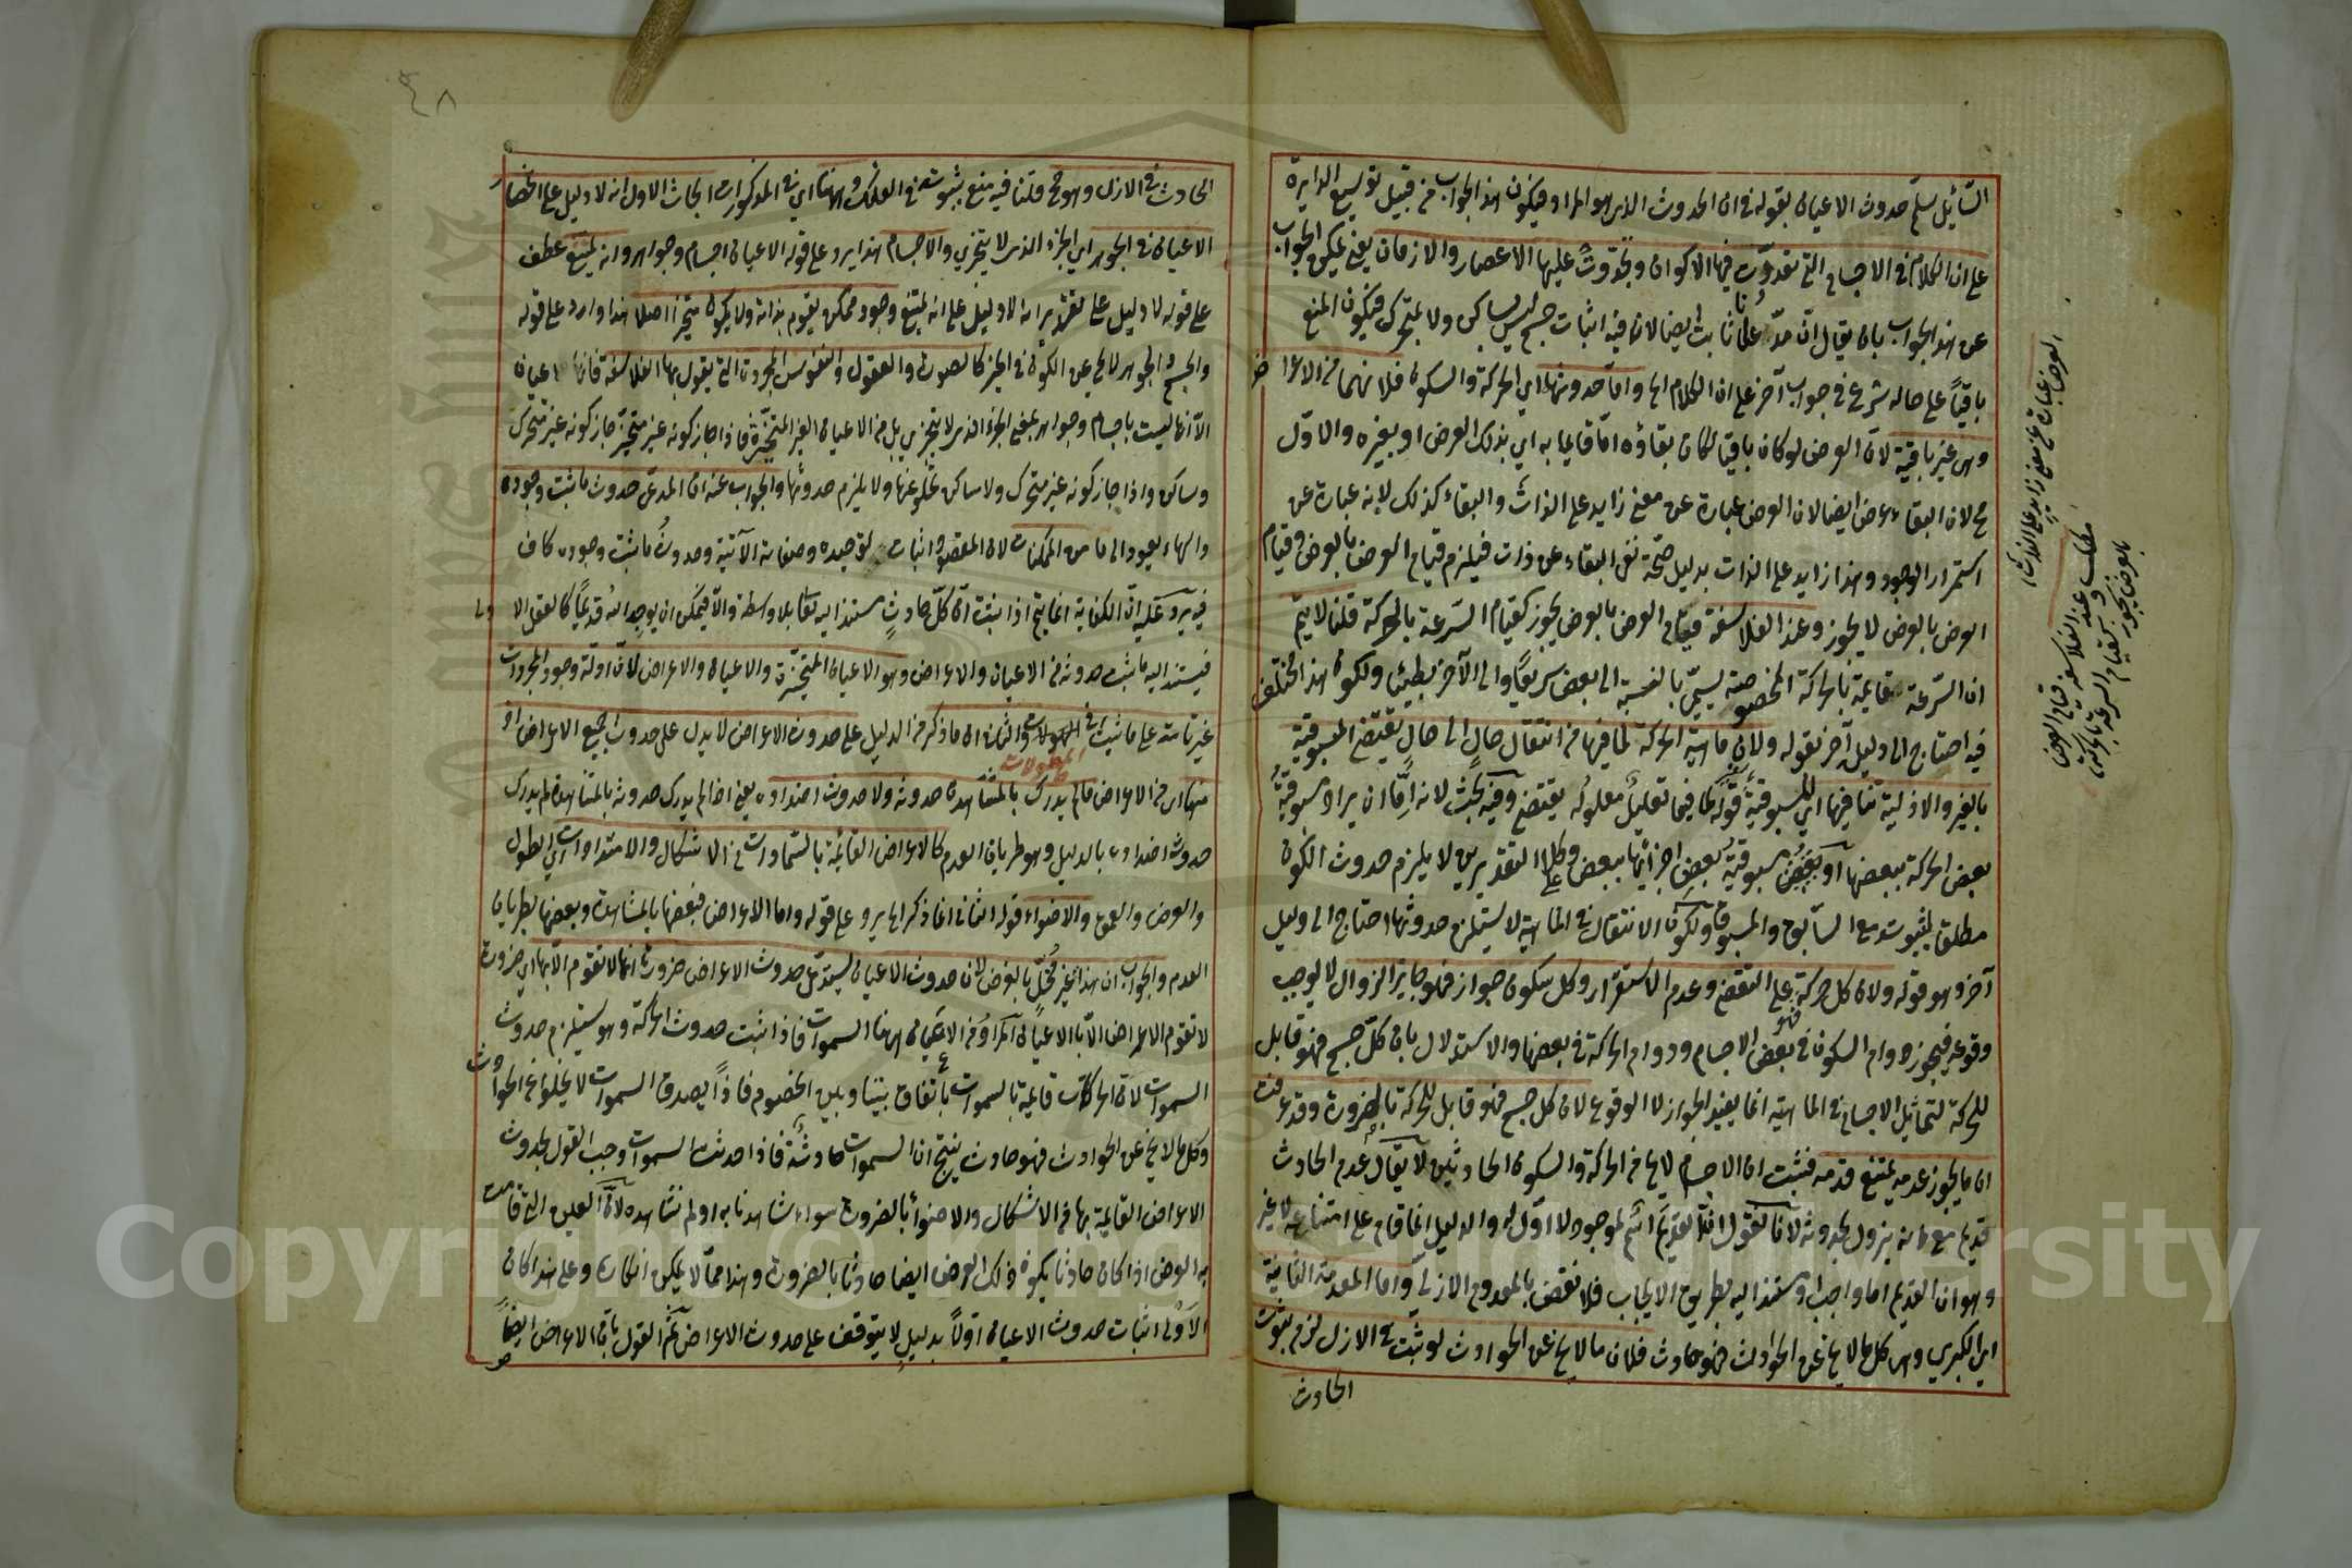 السّائل يسلّم حدوث الاعيان بقوله في ان الحدوث الذي هو المراد فيكون هذا الجواب من قبيل توسيع الدايرة
على ان الكلام في الاجسام التي تعددت فيها الاكوان وتجدّدت عليها الاعصار والازمان يعني يمكن الجواب
عن هذا الجواب بان يقال انّ مدّعانا ثابت ايضا لان فيه اثبات جسم ليس بساكن ولا بمتحرك فيكون المنع
باقيًا على حاله شرع في جواب آخر على ان الكلام الخ وامّا حدوثهما اي الحركة والسكون فلانهما من الاعراض
وهي غير باقية لانّ العرض لو كان باقيا لكان بقاؤه امّا قايما به اي بذلك العرض او بغيره والاوّل
مح لان البقاء عرض ايضا لان العرض عبارة عن معنى زايد على الذات والبقاء كذلك لانه عبارة عن
استمرار الوجود وهذا زايد على الذات بدليل صحّة نفي البقاء عن ذات فيلزم قيام العرض بالعرض وقيام
العرض بالعرض لا يجوز وعند الفلاسفة قيام العرض بالعرض يجوز كقيام السّرعة بالحركة قلنا لا يتمّ
ان السّرعة قايمة بالحركة المخصوصة يسمّى بالنسبة الى بعض سريعًا والى الآخر بطيئا ولكون هذا مختلف
فيه احتاج الى دليل آخر بقوله ولان ماهية الحركة لما فيها من انتقال حالٍ الى حالٍ يقتضي المسبوقية
بالغير والازلية تنافيها اي المسبوقية قوله لما فيها تعليل معلوله يقتضي وفيه بحث لانه امّا ان يراد مسبوقية
بعض الحركة ببعضها او مسبوقية بعض اجزائها ببعض وعلى كلا التقديرين لا يلزم حدوث الكون
مطلق لثبوت مع السّابق والمسبوق ولكون الانتقال في الماهية لا يستلزم حدوثها احتاج الى دليل
آخر وهو قوله ولان كل حركة على التقضي وعدم الاستقرار وكل سكون جواز فهو جايز الزوال لا يوجب
وقوعه فيجوز دوام السكون في بعض الاجسام ودوام الحركة في بعضها والاستدلال بان كلّ جسم فهو قابل
للحركة لتماثل الاجسام في الماهية انما يفيد الجواز لا الوقوع لان كل جسم فهو قابل للحركة بالضرورة وقد عرفت
ان ما يجوز عدمه يمتنع قدمه فثبت ان الاجسام لا يخ من الحركة والسكون الحادثين لا يقال عدم الحادث
قديم مع انه يزول بحدوثه لانا نقول القديم اسم لموجود لا اوّل له والدليل انما قام على امتناعه لا غير
وهو ان القديم اما واجب او مستند اليه بطريق الايجاب فلا نقض بالمعدوم الازلي واما المقدمة الثانية
اي الكبرى وهي كل ما لا يخ عن الحوادث فهو حادث فلان ما لا يخ عن الحوادث لو ثبت في الازل لزم ثبوت
الحادث
العرض عبارة عن معنى زايد على الذات
مطلب
عند الفلاسفة قيام العرض
بالعرض يجوز كقيام السرعة بالحركة
٤٨
الحادث في الازل وهو مح قلنا فيه منع ثبوت في الفلك وههنا اي في المذكورات ابحاث الاول انه لا دليل على انحصار
الاعيان في الجوهر اي الجزء الذي لا يتجزي والاجسام هذا يرد على قوله الاعيان اجسام وجواهر وانه يمتنع عطف
على قوله لا دليل على تقدير انه لا دليل على انه يمتنع وجود ممكن يقوم بذاته ولا يكون متحيزا اصلا هذا وارد على قوله
والجسم والجوهر لا يخ عن الكون في الحيز كالصورة والعقول والنفوس المجردة التي يقول بها الفلاسفة فانها اعيان
الّا انها ليست باجسام وجواهر بمعنى الجزء الذي لا يتجزي بل من الاعيان الغير المتحيّزة فاذا جاز كونه غير متحيّز جاز كونه غير متحرك
وساكن واذا جاز كونه غير متحرك ولا ساكن خلو عنها ولا يلزم حدوثها والجواب عنه ان المدعى حدوث ما ثبت وجوده
والهاء يعود الى ما من الممكنات لان المقصود اثبات توحيده وصفاته الآتية وحدوث ما ثبت وجوده كاف
فيه يرد عليه انّ الكفاية انما يتم اذا ثبت انّ كلّ حادثٍ مستند اليه تعالى بلا واسطة والّا فيمكن ان يوجد الله قديمًا كالعقل الاول
فيستند اليه ما ثبت حدوثه من الاعيان والاعراض وهو الاعيان المتحيّزة والاعيان والاعراض لانّ ادلّة وجود المجردات
غير تامة على ما ثبت في المطولات والثاني ان ما ذكر من الدليل على حدوث الاعراض لا يدل على حدوث جميع الاعراض اذ
المطولات
منها اي من الاعراض ما لم يدرك بالمشاهدة حدوثه ولا حدوث اضداده يعني اذا لم يدرك حدوثه بالمشاهدة لم يدرك
حدوث اضداده بالدليل وهو طريان العدم كالاعراض القائمة بالسّماوات من الاشكال والامتدادات اي الطول
والعرض والعمق والاضواء قوله الثاني انما ذكر الخ يرد على قوله واما الاعراض فبعضها بالمشاهدة وبعضها بطريان
العدم والجواب ان هذا غير مُخلّ بالغرض لان حدوث الاعيان يستدعي حدوث الاعراض ضرورة انها لا تقوم الّا بها اي ضرورة
لا تقوم الاعراض الّا بالاعيان المراد من الاعيان ههنا السموات فاذا ثبت حدوث الحركة وهو يستلزم حدوث
السموات لانّ الحركات قايمة بالسموات باتفاق بيننا وبين الخصوم فاذًا يصدق السموات لا يخلو عن الحوادث
وكل ما لا يخ عن الحوادث فهو حادث ينتج ان السموات حادثة فاذا حدثت السموات وجب القول بحدوث
الاعراض القايمة بها من الاشكال والاضواء بالضرورة سواء شاهدنا به او لم نشاهده لانّ العين التي قامت
به العرض اذا كان حادثا يكون ذلك العرض ايضا حادثا بالضرورة وهذا ممّا لا يمكن انكاره وعلى هذا كان
الاَوْلى اثبات حدوث الاعيان اوّلًا بدليلٍ لا يتوقف على حدوث الاعراض ثمّ القول بانّ الاعراض ايضًا